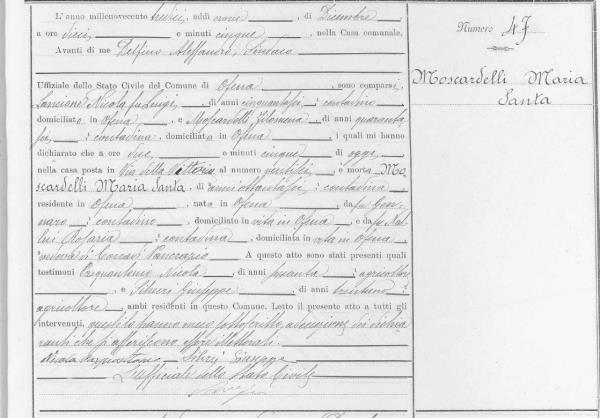 L'anno millenovecento tredici, addì nove, di Dicembre
a ore dieci e minuti cinque, nella Casa comunale,
Avanti di me Delfino Alessandro, Sindaco
Uffiziale dello Stato Civile del Comune di Ofena, sono comparsi
Nicola fu Luigi, di anni cinquantasei, contadino
domiciliato in Ofena e Moscardelli Filomena, di anni quaranta
sei, contadina, domiciliata in Ofena, i quali mi hanno
dichiarato che a ore due, e minuti cinque di oggi,
nella casa posta in Via della Vittoria al numero ventisei, è morta Mo
scardelli Maria Santa, di anni ottantasei, contadina
residente in Ofena, nata in Ofena, da fu Gen
naro, contadino, domiciliato in vita in Ofena, e da fu
Rosaria, contadina, domiciliata in vita in Ofena,
vedova di Corradi Pancrazio. A questo atto sono stati presenti quali
testimoni Nicola, di anni, agricoltore
, e Silveri Giuseppe, di anni trentuno,
agricoltore, ambi residenti in questo Comune. Letto il presente atto a tutti gli
intervenuti, questi lo hanno meco sottoscritto, ad eccezione dei dichia
ranti che asseriscono essere illetterati.
Nicola Silveri Giuseppe
L'ufficiale dello Stato Civile
Numero 47
Moscardelli Maria
Santa